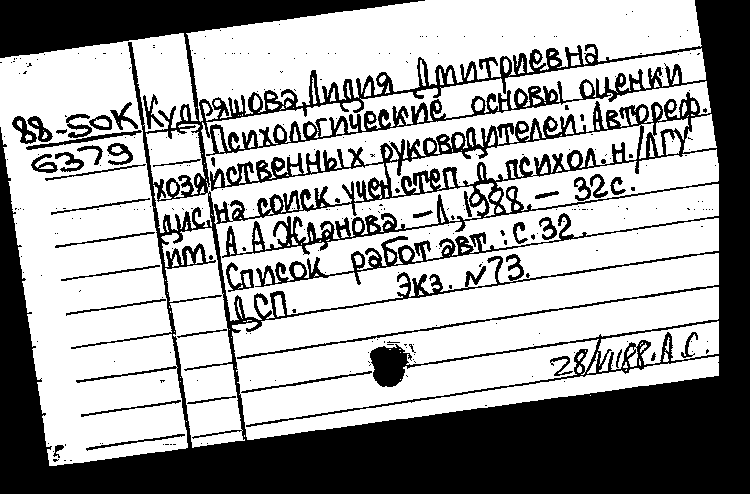 88-5ОК
6379
Кудряшова, Лидия Дмитриевна.
Психологические основы оценки
хозяйственных руководителей: Автореф.
дис. на соиск. учен. степ. д. психол. н. / ЛГУ
им. А. А. Жданова. – Л., 1988. – 32 с.
Список работ авт.: с. 32.
ДСП. Экз. N 73.
28/VII88. А.С.